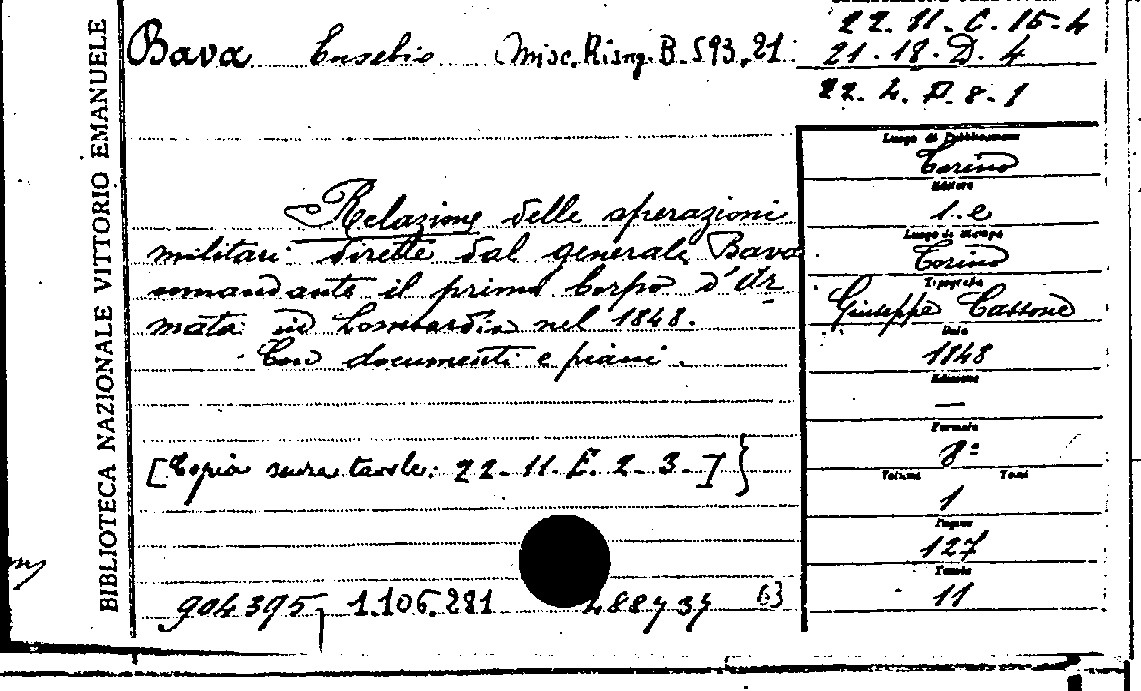 BIBLIOTECA NAZIONALE VITTORIO EMANUELE
Bava Eusebio (Misc. Risorg. B. 593, 21.
22. 11. C. 15-4
21. 18. D. 4
22. 2. D. 8. 1
Relazione delle operazioni
militari dirette dal generale Bava
comandante il primo Corpo d'Ar
mata in Lombardia nel 1848.
Con documenti e piani.
[Copia senza tavole: 22-11. E. 2-3.-]}
904395, 1.106.281 63
Luogo di Pubblicazione
Torino
Editore
s. e
Luogo di stampa
Torino
Tipografia
Giuseppe Cassone
Data
1848
Edizione
—
Formato
8°
Volumi Tomi
1
Pagine
127
Tavole
11